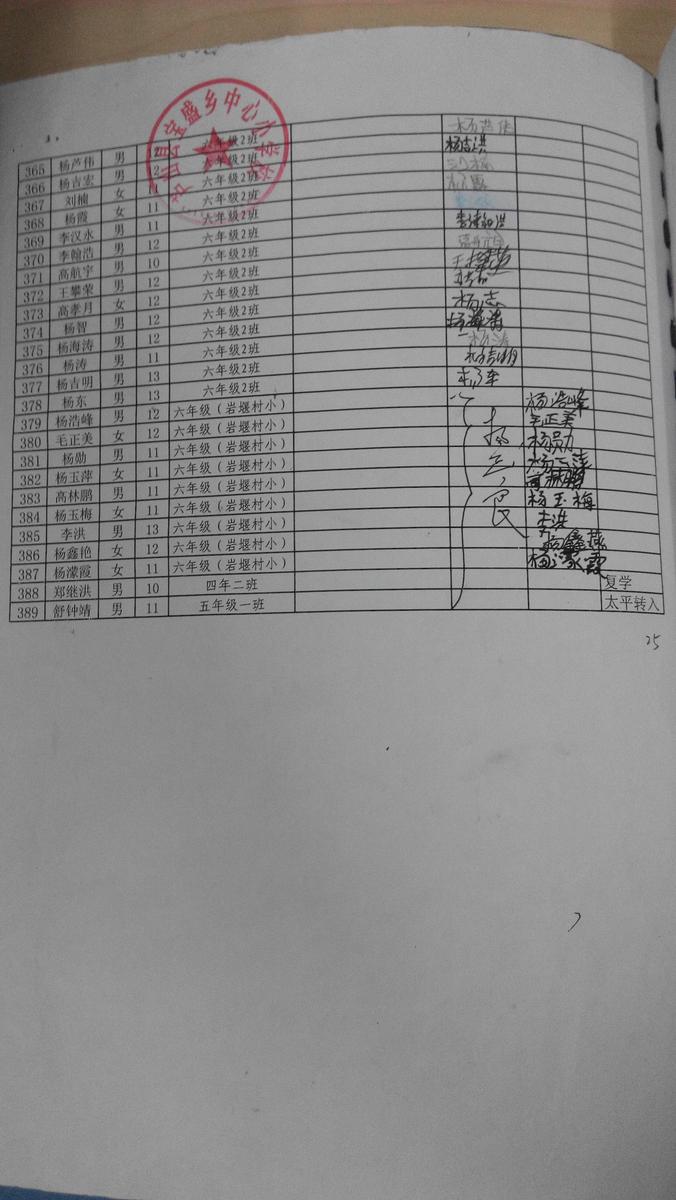 宝盛乡中心小学校
365 杨芦伟 男 12 六年级2班
366 杨吉宏 男 2 六年级2班 杨吉洪
367 刘楠 女 六年级2班
368 杨霞 女 11 六年级2班
369 李汉永 男 11 六年级2班
370 李翰浩 男 12 六年级2班
371 高航宇 男 10 六年级2班
372 王攀荣 男 12 六年级2班
373 高孝月 女 12 六年级2班
374 杨智 男 12 六年级2班 杨志
375 杨海涛 男 12 六年级2班 杨海涛
376 杨涛 男 11 六年级2班 杨涛
377 杨吉明 男 13 六年级2班 杨吉明
378 杨东 男 13 六年级2班
379 杨浩峰 男 12 六年级（岩堰村小） 杨浩峰
380 毛正美 女 12 六年级（岩堰村小） 毛正美
381 杨勋 男 11 六年级（岩堰村小） 杨勋
382 杨玉萍 女 11 六年级（岩堰村小）
383 高林鹏 男 11 六年级（岩堰村小） 高林鹏
384 杨玉梅 女 11 六年级（岩堰村小） 杨玉梅
385 李洪 男 13 六年级（岩堰村小） 李洪
386 杨鑫艳 女 12 六年级（岩堰村小）
387 杨濛霞 女 11 六年级（岩堰村小） 杨濛霞
388 郑继洪 男 10 四年二班 复学
389 舒钟靖 男 11 五年级一班 太平转入
25